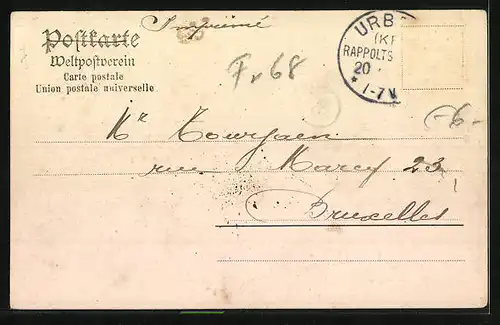 Imprimé
Postkarte
Weltpostverein
Carte postale
Union postale universelle
URB
(KR
RAPPOLTS
20
* 1-7 N
Fr 68
-6-
Mr
rue Marcq 23
Bruxelles